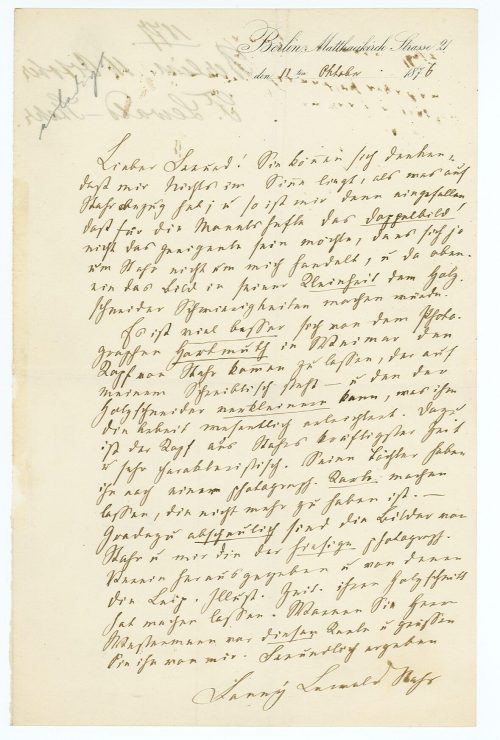 Berlin, Matthäikirch-Strasse 21
den 11 ten Oktober 1876
Lieber Freund! Sie können sich denken,
daß mir Nichts im Sinn liegt, als was auf
Stahr Bezug hat, u so ist mir denn eingefallen
daß für die Monatshefte das Doppelbild
nicht das geeignete sein möchte, da es sich ja
um Stahr nicht um mich handelt, u da oben-
ein das Bild in seiner Kleinheit dem Holz-
schneider Schwierigkeiten machen würde.
Es ist viel besser sich von dem Photo-
graphen Hartmuth in Weimar den
Kopf von Stahr kommen zu lassen, der auf
meinem Schreibtisch steht — u den der
Holzschneider verkleinern kann, was ihm
die Arbeit wesentlich erleichtert. Dazu
ist der Kopf aus Stahrs kräftigster Zeit
u sehr charakteristisch. Seine Töchter haben
ihn nach einem photograph. machen
lassen, die nicht mehr zu haben ist. —
Geradezu abscheulich sind die Bilder von
Stahr u mir die der hiesige photogr.
Verein herausgegeben u von denen
die Leip. Illust. Zeit. ihren Holzschnitt
hat machen lassen. Warnen Sie Herrn
Westermann vor diesem u grüssen
Sie ihn von mir. Freundlich ergeben
Fanny Lewald Stahr